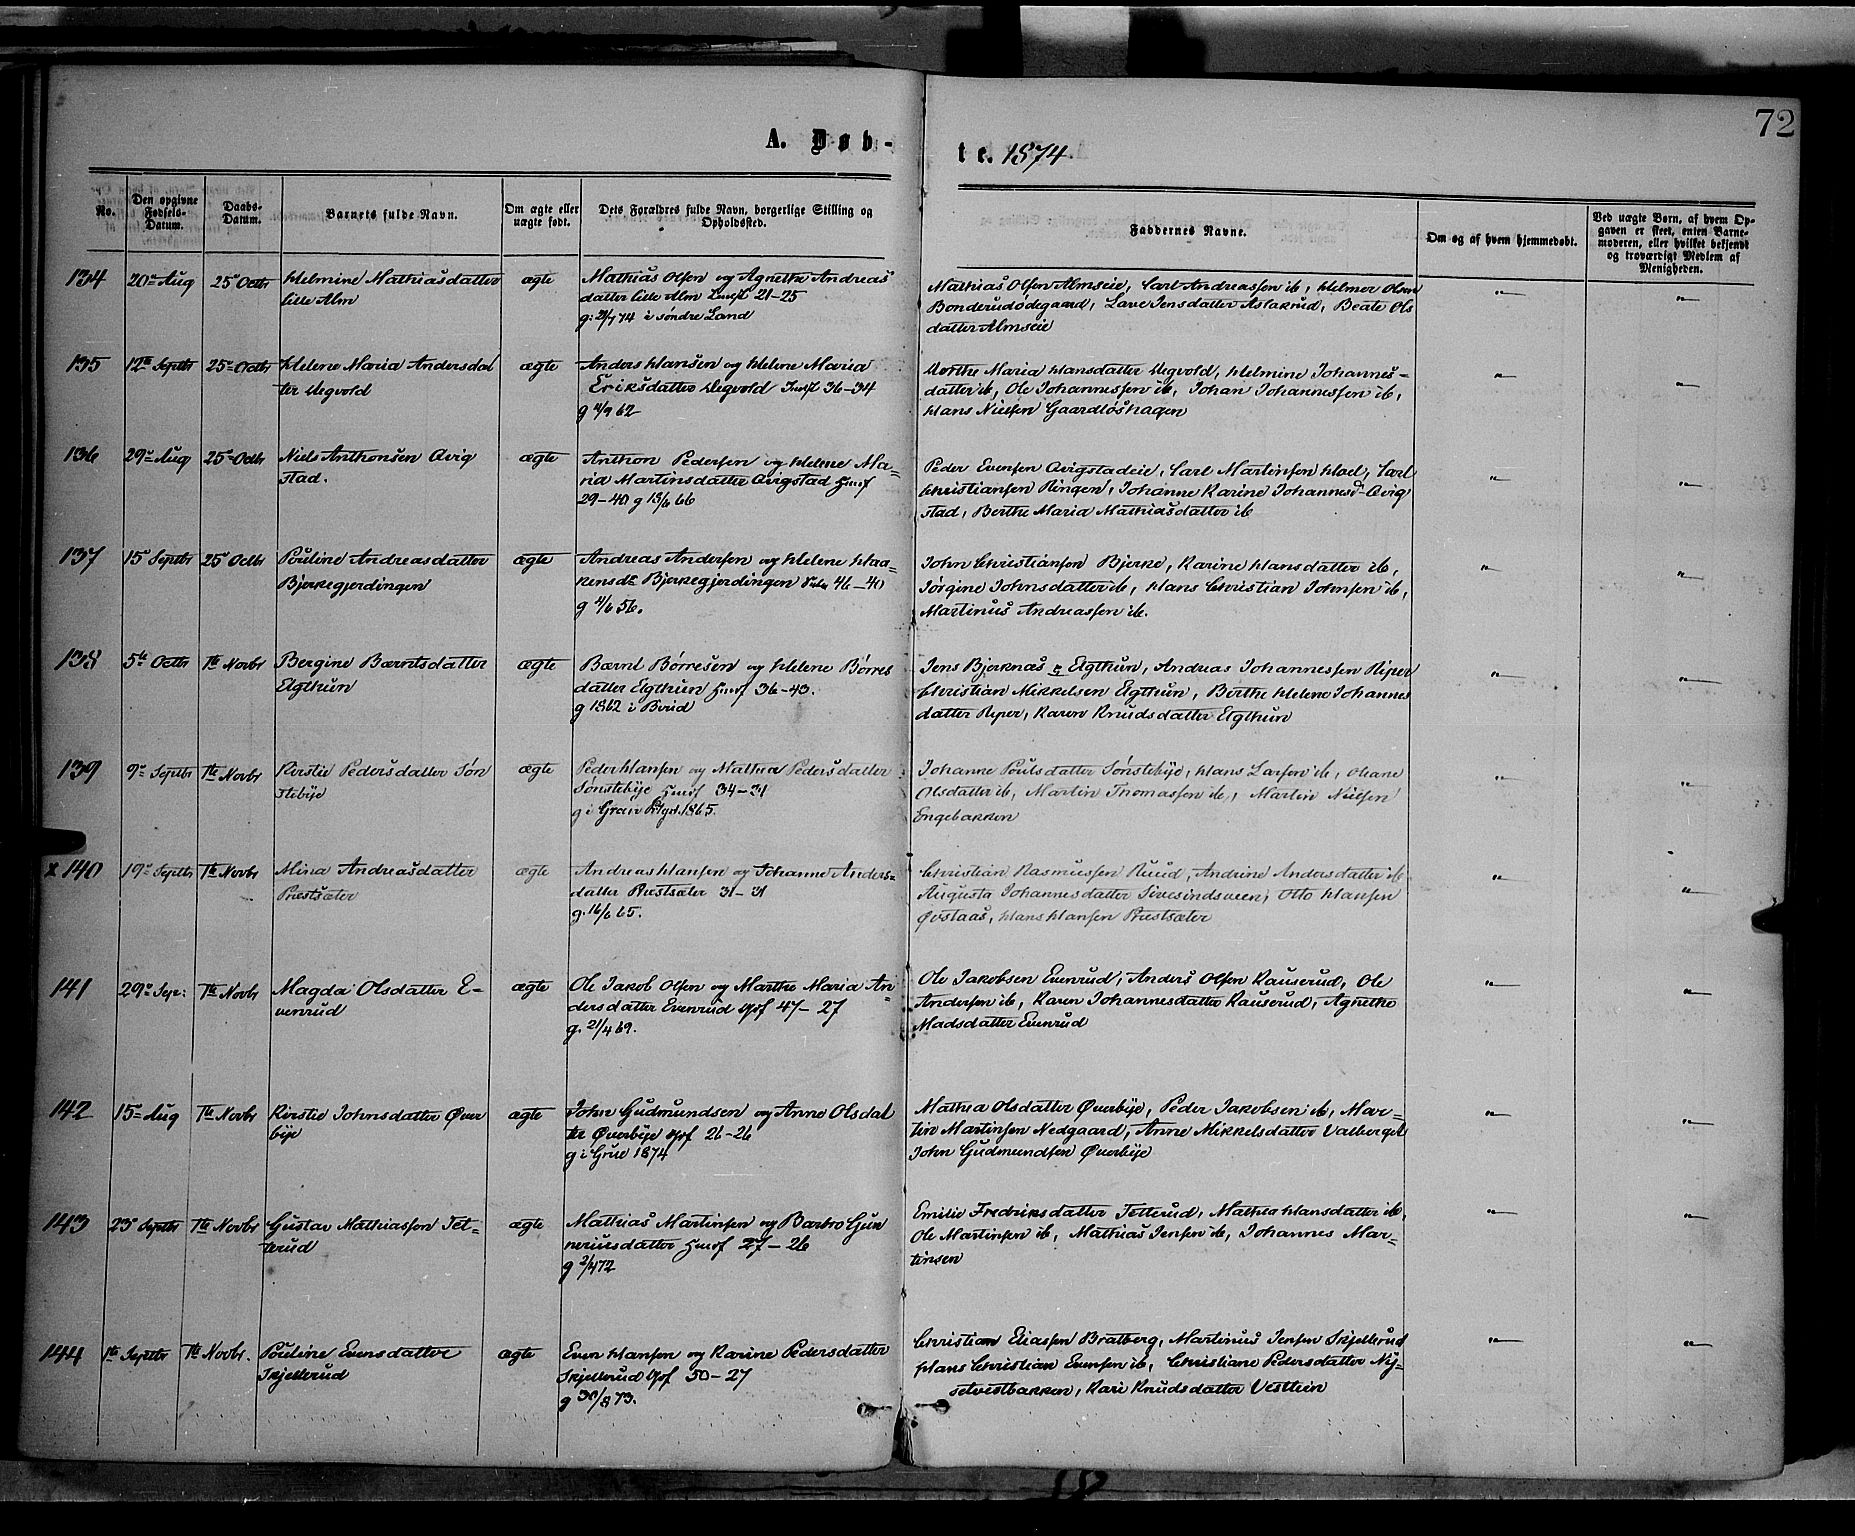 72
A. Døb-
te. 1874.
No.
Den opgivne Fødsels-Datum.
Daabs-Datum.
Barnets fulde Navn.
Om ægte eller uægte født.
Dets Forældres fulde Navn, borgerlige Stilling og Opholdssted.
Faddernes Navne.
Om og af hvem hjemmedøbt.
Ved uægte Børn, af hvem Opgaven er skeet, enten Barnemoderen, eller hvilket bekjendt og troværdigt Medlem af Menigheden.
134 20de Aug 25de Octbr Helmine Mathiasdatter
Lille Alm
ægte
Mathias Olsen og Agnethe Andreas
datter Lille Alm 21-25
i søndre Land
Mathias Olsen Almseie, Carl Andreassen ib, Helmer Olsen
Bonderudødegaard, Lave Jensdatter Aslakrud, Beate Ols
datter Almseie
135 12te Septbr 25de Octbr Helene Maria Andersdat
ter Degvold
ægte
Anders Hansen og Helene Maria
Eriksdatter Degvold 36-34
g 62
Dorthe Maria Hansdatter Degvold, Helmine Johannes-
datter ib, Ole Johannessen ib, Johan Johannessen ib,
Hans Nielsen Gaardløshagen
136 29de Aug 25de Octbr Niels Anthonsen Qvig
stad.
ægte
Anthon Pedersen og Helene Ma-
ria Martinsdatter Qvigstad Husf
29-40 g 13/6 66
Peder Evensen Qvigstadeie, Carl Martinsen Hoel, Carl
Christiansen Ringen, Johanne Karine Johannesd Qvig
stad, Berthe Maria Mathiasdatter ib
137 15de Septbr 25de Octbr Pouline Andreasdatter
Bjerkegjerdingen
ægte
Andreas Andersen og Helene Haa-
kensdr Bjerkegjerdingen 46-40
g 4/6 56.
John Christiansen Bjerke, Karine Hansdatter ib,
Jørgine Johnsdatter ib, Hans Christian Johnsen ib,
Martinus Andreassen ib.
138 5te Octbr 1ste Novbr Bergine Bærntsdatter
Elgthun
ægte
Bærnt Børresen og Helene Børres
datter Elgthun Husf 36-43.
g 1862 i Birid
Jens Bjerknæs Elgthun, Andreas Johannessen Riper
Christian Mikkelsen Elgthun, Berthe Helene Johannes
datter Riper, Karen Knudsdatter Elgthun
139 9de Septbr 1ste Novbr Kirstie Pedersdatter Søn
stebye
ægte
Peder Hansen og Mathea Pedersdatter
Sønstebye Husf 34-31
g i Gran 1865.
Johanne Poulsdatter Sønstebye, Hans Larsen ib, Oliane
Olsdatter ib, Martin Thomassen ib, Martin Nielsen
Engebakken
x 140 19de Septbr 1ste Novbr Mina Andreasdatter
Præstsæter
ægte
Andreas Hansen og Johanne Anders-
datter Præstsæter 31-31
g. 16/6 65.
Christian Rasmussen Ruud, Andrine Andersdatter ib
Augusta Johannesdatter Sivesindsveen, Otto Hansen
Øvstaas, Hans Hansen Præstsæter
141 29de Sept: 1ste Novbr Magda Olsdatter E-
venrud
ægte
Ole Jakob Olsen og Marthe Maria An-
dersdatter Evenrud Gpf 47-27
g. 21/4 69.
Ole Jakobsen Evenrud, Anders Olsen Kauserud, Ole
Andersen ib, Karen Johannesdatter Kauserud, Agnethe
Madsdatter Evenrud
142 15de Aug 1ste Novbr Kirstie Johnsdatter Øver
bye
ægte
John Gudmundsen og Anne Olsdat
ter Øverbye Gpf 26-26
g i Grue 1874
Mathea Olsdatter Øverbye, Peder Jakobsen ib, Mar-
tin Martinsen Nedgaard, Anne Mikkelsdatter Valberget
John Gudmundsen Øverbye
143 23de Septbr 1ste Novbr Gustav Mathiassen Tet-
terud
ægte
Mathias Martinsen og Barbro Gun
neriusdatter Husf 27-26
g 2/4 72
Emilie Fredriksdatter Tetterud, Mathea Hansdatter ib,
Ole Martinsen ib, Mathias Jensen ib, Johannes Mar-
tinsen
144 1ste Septbr 1ste Novbr. Pouline Evensdatter
Skjellerud
ægte
Even Hansen og Karine Pedersdatter
Skjellerud Gpf 50-27
g 30/8 73.
Christian Eliassen Bratberg, Martinus Jensen Skjellerud
Hans Christian Evensen ib, Christiane Pedersdatter Ny-
setvestbakken, Kari Knudsdatter Vestlien